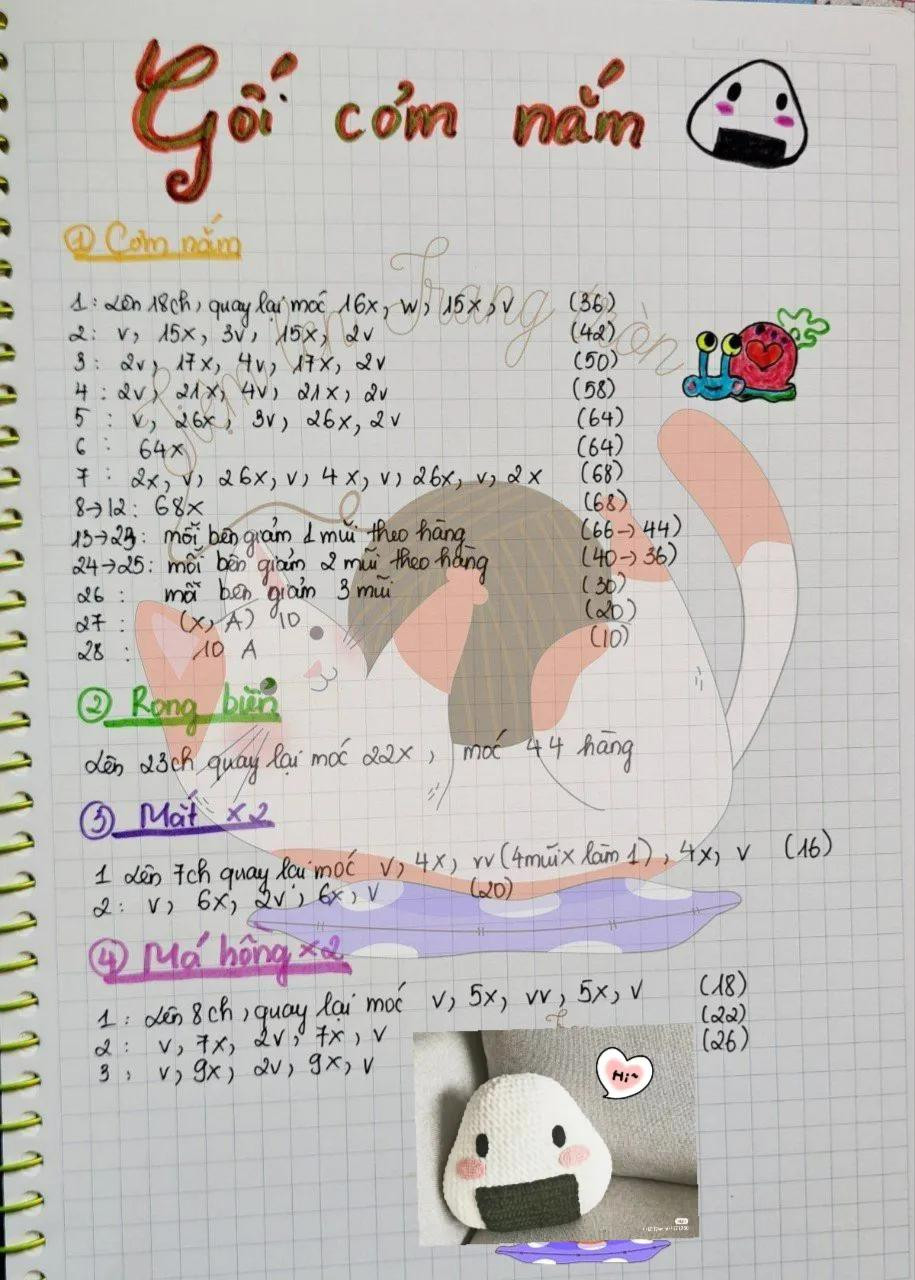 Gối cơm nắm
① Cơm nắm
1: Lên 18ch, quay lại móc 16x, w, 15x, v (36)
2: v, 15x, 3v, 15x, 2v (42)
3: 2v, 17x, 4v, 17x, 2v (50)
4: 2v, 21x, 4v, 21x, 2v (58)
5: v, 26x, 3v, 26x, 2v (64)
6: 64x (64)
7: 2x, v, 26x, v, 4x, v, 26x, v, 2x (68)
8→12: 68x (68)
13→23: mỗi bên giảm 1 mũi theo hàng (66→44)
24→25: mỗi bên giảm 2 mũi theo hàng (40→36)
26: mỗi bên giảm 3 mũi (30)
27: (x, A) 10 (20)
28: 10 A (10)
② Rong biển
Lên 23ch quay lại móc 22x, móc 44 hàng
③ Mắt x2
1 Lên 7ch quay lại móc v, 4x, vv (4 mũi x làm 1), 4x, v (16)
2: v, 6x, 2v, 6x, v (20)
④ Má hồng x2
1: Lên 8ch, quay lại móc v, 5x, vv, 5x, v (18)
2: v, 7x, 2v, 7x, v (22)
3: v, 9x, 2v, 9x, v (26)
Hi~